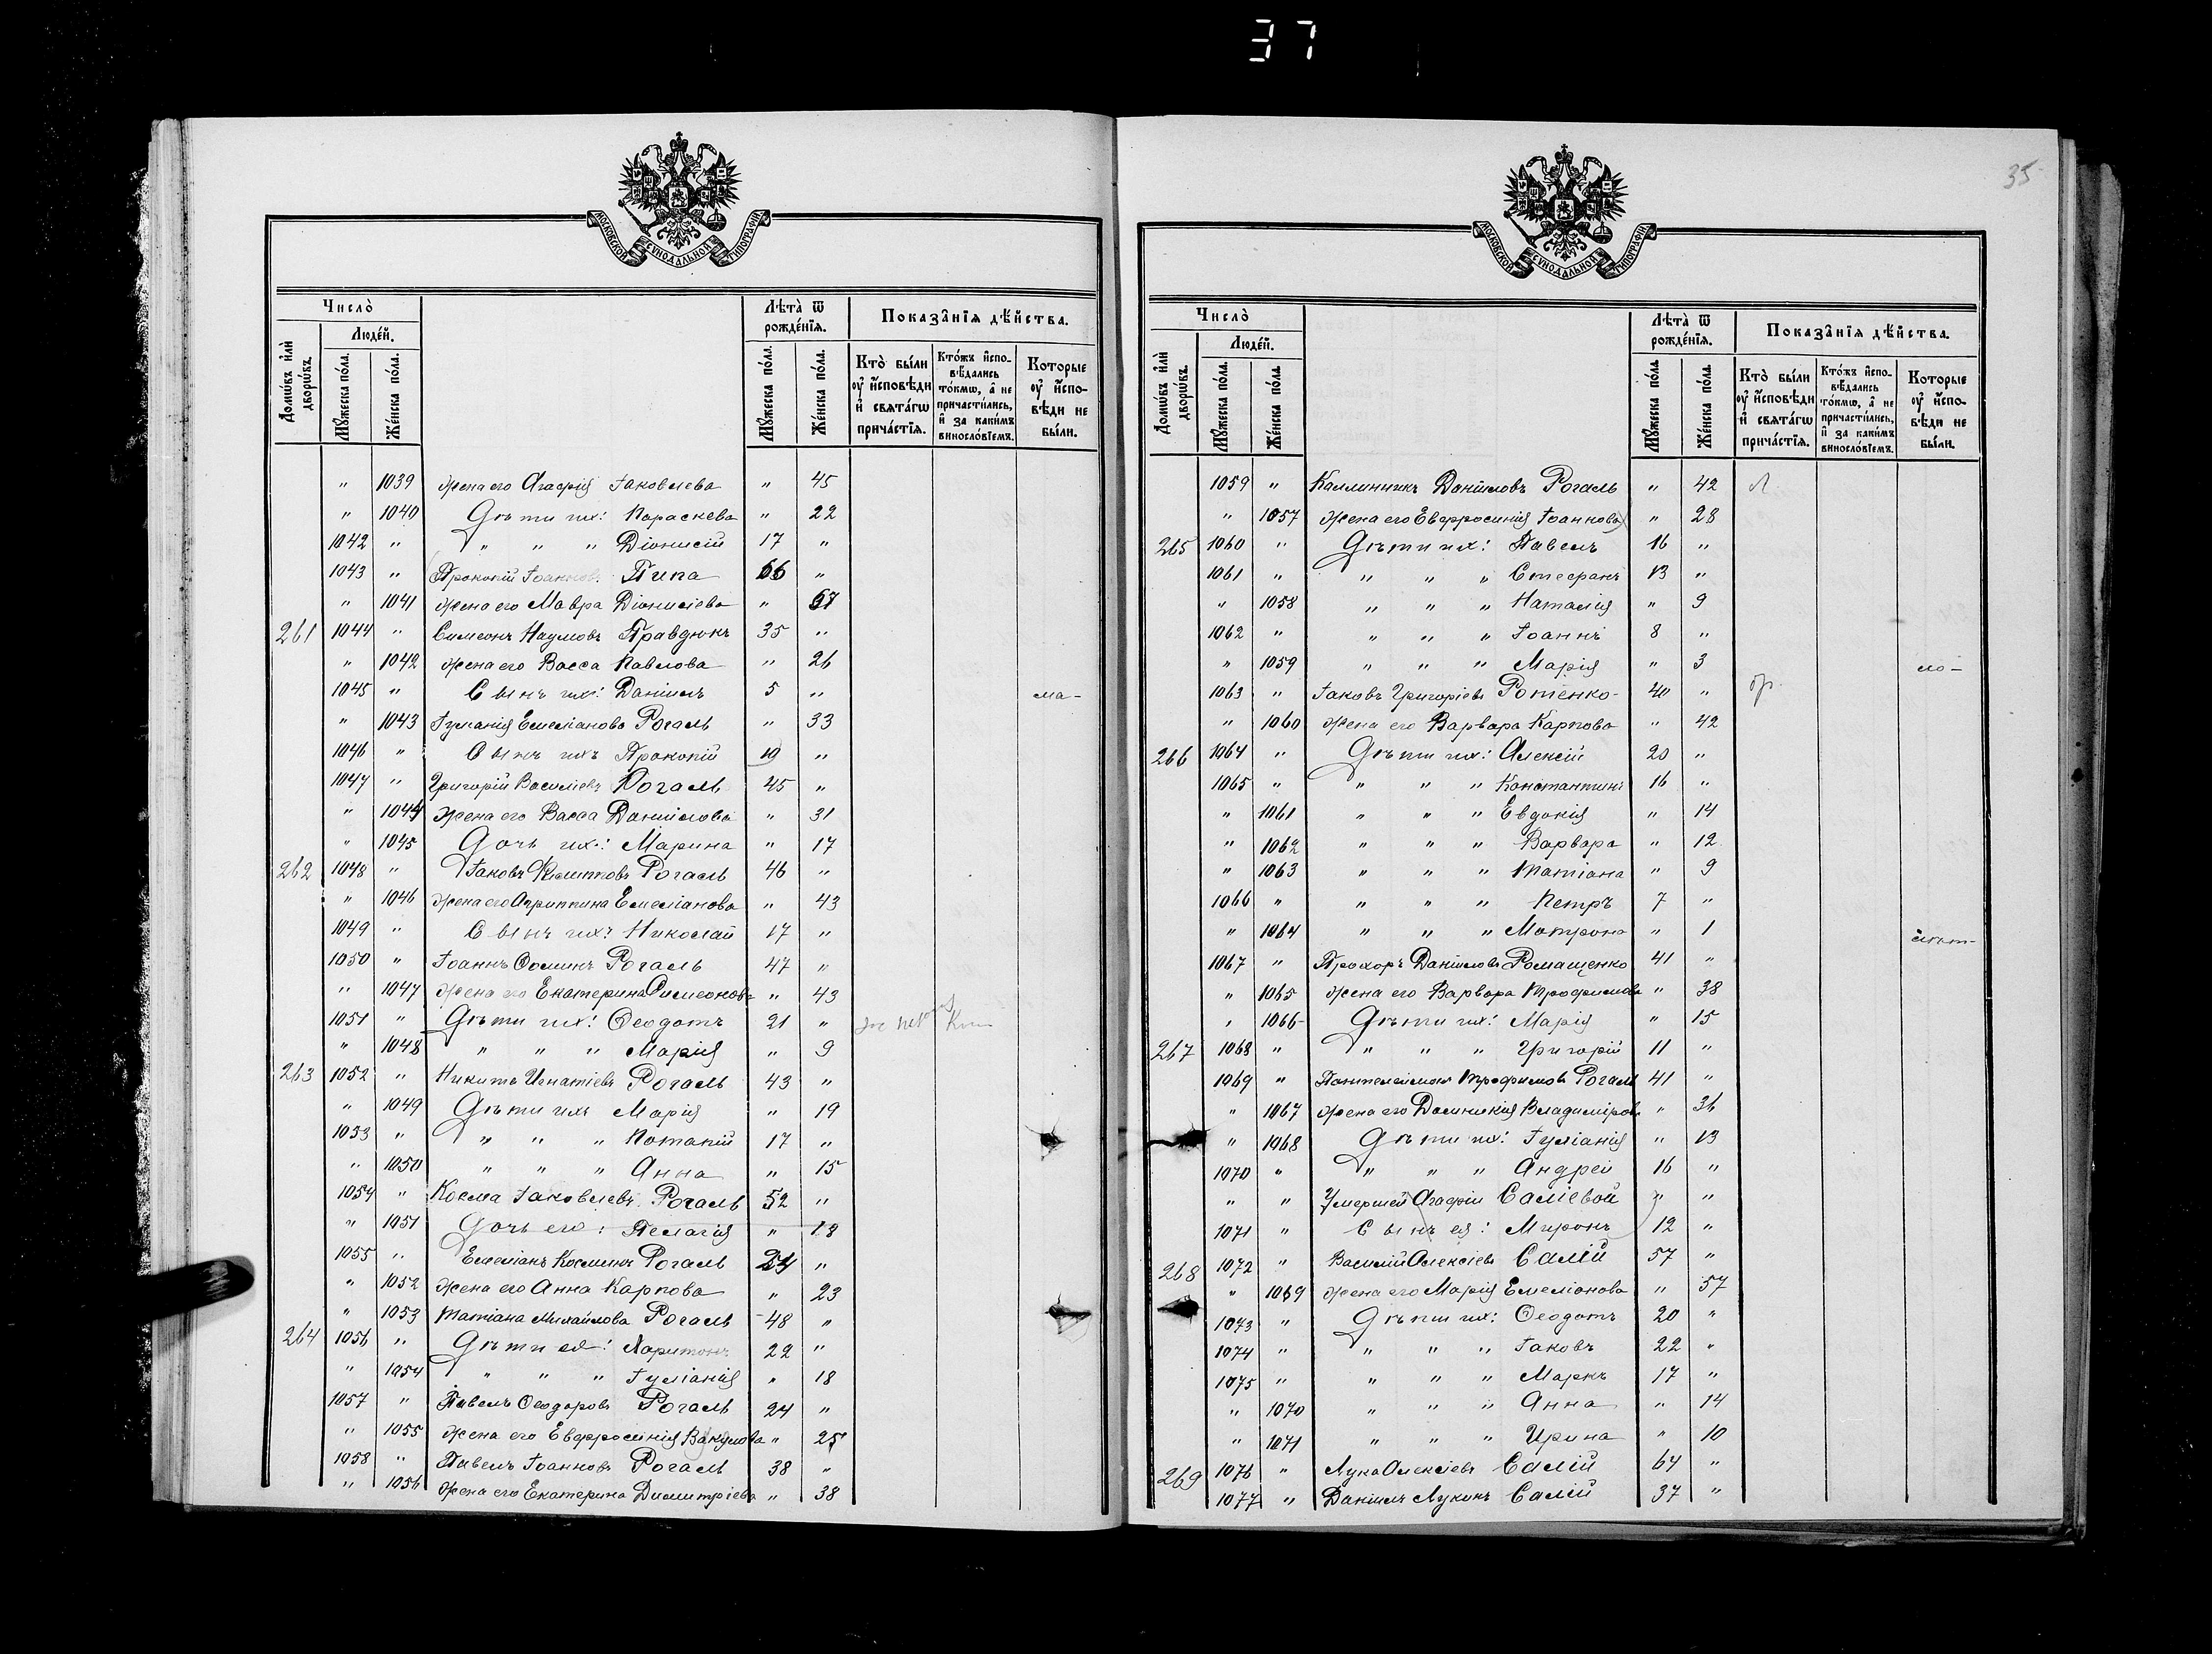 37
МОСКОВСКОЙ СѴНОДАЛЬНОЙ ТИПОГРАФІИ
Число̀
Домѡ́въ и҆лѝ дворѡ́въ.
Люде́й.
Мꙋ́жеска по́ла.
Же́нска по́ла.
Лѣ́та ѿ рожде́нїѧ.
Мꙋ́жеска по́ла.
Же́нска по́ла.
Показа̂нїѧ дѣ́йства.
Кто̀ бы́ли ᲂу҆ и҆сповѣ́ди и҆ свѧта́гѡ прича́стїѧ.
Кто́жъ и҆сповѣ́дались то́кмѡ, а҆ не причасти́лись, и҆ за каки́мъ винослові́емъ.
Кото́рые ᲂу҆ и҆сповѣ́ди не бы́ли.
" 1039 Жена его Агафія Іаковлева " 45
" 1040 Дѣти их: Параскева " 22
1042 " " " " Діонисій 17 "
1043 " Прокопій Іоаннов. Пипа 66 "
" 1041 жена его Мавра Діонисіева " 67
261 1044 " Симеонъ Наумовъ Правдюкъ 35 "
" 1042 жена его Васса Павлова " 26
1045 " Сынъ их: Даніилъ 5 "
" 1043 Іуліанія Емеліанова Рогаль " 33
1046 " Сынъ ихъ Прокопій 19 "
1047 " Григорій Василіевъ Рогаль 45 "
" 1044 жена его Васса Даніилова " 31
" 1045 Дочь их: Марина " 17
262 1048 " Іаковъ Филипповъ Рогаль 46 "
" 1046 жена его Агриппина Емеліанова " 43
1049 " Сынъ их: Николай 17 "
1050 " Іоаннъ Ѳоминъ Рогаль 47 "
" 1047 жена его Екатерина Симеонова " 43
1051 " Дѣти их: Ѳеодотъ 21 "
" 1048 " " " Марія " 9
263 1052 " Никита Игнатіевъ Рогаль 43 "
" 1049 Дѣти ихъ Марія " 19
1053 " " " " Потапій 17 "
" 1050 " " " Анна " 15
1054 " Косма Іаковлевъ Рогаль 52 "
" 1051 Дочь его: Пелагія " 18
1055 " Емеліанъ Косминъ Рогаль 24 "
" 1052 жена его Анна Карпова " 23
" 1053 Татіана Михайлова Рогаль 48 "
264 1056 " Дѣти ея: Харитонъ 22 "
" 1054 " " " Іуліанія " 18
1057 " Павелъ Ѳеодоровъ Рогаль 24 "
" 1055 жена его Евфросинія Вакулова " 25
1058 " Павелъ Іоанновъ Рогаль 38 "
" 1056 жена его Екатерина Димитріева " 38
35
МОСКОВСКОЙ СѴНОДАЛЬНОЙ ТИПОГРАФІИ
Число̀
Домѡ́въ и҆лѝ дворѡ́въ.
Люде́й.
Мꙋ́жеска по́ла.
Же́нска по́ла.
Лѣ́та ѿ рожде́нїѧ.
Мꙋ́жеска по́ла.
Же́нска по́ла.
Показа̂нїѧ дѣ́йства.
Кто̀ бы́ли ᲂу҆ и҆сповѣ́ди и҆ свѧта́гѡ прича́стїѧ.
Кто́жъ и҆сповѣ́дались то́кмѡ, а҆ не причасти́лись, и҆ за каки́мъ винослові́емъ.
Кото́рые ᲂу҆ и҆сповѣ́ди не бы́ли.
1059 " Каллиникъ Даніиловъ Рогаль " 42
" 1057 жена его Евфросинія Іоаннова " 28
265 1060 " Дѣти их: Павелъ 16 "
1061 " " " " Стефанъ 13 "
" 1058 " " " Наталія " 9
1062 " " " " Іоаннъ 8 "
" 1059 " " " Марія " 3
1063 " Іаковъ Григоріевъ Ротенко 40 "
" 1060 жена его Варвара Карпова " 42
266 1064 " Дѣти их: Алексій 20 "
1065 " " " " Константинъ 16 "
" 1061 " " " Евдокія " 14
" 1062 " " " Варвара " 12
" 1063 " " " Татіана " 9
1066 " " " " Петръ 7 "
" 1064 " " " Матрона " 1
1067 " Прохоръ Даніиловъ Ромащенко 41 "
" 1065 жена его Варвара Трофимова " 38
" 1066 Дѣти их: Марія " 15
267 1068 " " " " Григорій 11 "
1069 " Пантелеимонъ Трофимовъ Рогаль 41 "
" 1067 жена его Домникія Владимірова " 36
" 1068 Дѣти их: Іуліанія " 13
1070 " " " " Андрей 16 "
" " Умершей Агафіи Саліевой " "
1071 " Сынъ ея: Миронъ 12 "
268 1072 " Василій Алексіевъ Салій 57 "
" 1069 жена его Марія Емеліанова " 57
1073 " Дѣти их: Ѳеодотъ 20 "
1074 " " " " Іаковъ 22 "
1075 " " " " Маркъ 17 "
" 1070 " " " Анна " 14
" 1071 " " " Ирина " 10
269 1076 " Лука Алексіевъ Салій 64 "
1077 " Даніилъ Лукинъ Салій 37 "